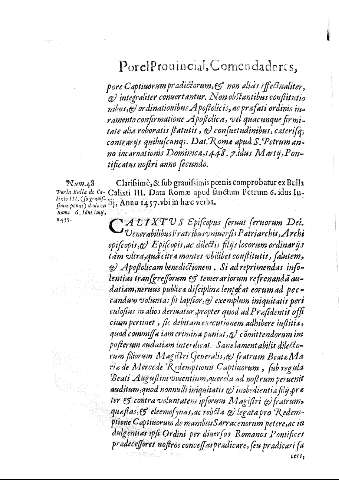 Por el Provincial, Comendadores,
pore Captiuorum prædictorum, & non aliàs effectualiter,
& integraliter conuertantur. Non obstantibus constitutio
nibus, & ordinationibus Apostolicis, ac præfati ordinis iu-
ramento confirmatione Apostolica, vel quacunque firmi-
tate alia roboratis statutis, & consuetudinibus, caterisq;
contrarijs quibuscunq;. Dat. Romæ apud S. Petrum an-
no incarnationis Dominica, 1448. 7. idus Martij, Pon-
tificatus nostri anno secundo.
Num. 48
Clarissimè, & sub grauissimis pœnis comprobatur ex Bulla
Calixti III. Data Romæ apud sanctum Petrum 6. idus Iu-
lij, Anno 1457. vbi in hæc verba.
CALIXTVS Episcopus seruus seruorum Dei,
Venerabilibus Fratribus vniuersis Patriarchis, Archi
episcopis, & Episcopis, ac dilectis filijs locorum ordinarijs
tam vltra, quàm citra montes vbilibet constitutis, salutem,
& Apostolicam benedictionem. Si ad reprimendas inso-
lentias transgressorum & temerariorum refrenandâ au-
datiam, neruus publicæ disciplinæ lenescat eorum ad pec-
candum voluntas fit lapsior, & exemplum iniquitatis peri
culosius in alios deriuatur, propter quod ad Præsidentis offi
cium pertinet, sic debitam executionem adhibere iustitiæ,
quod commissa iam crimina puniat, & committendorum im
posterum audatiam interdicat. Sane lamentabilis dilecto-
rum filiorum Magistri Generalis, & fratrum Beatæ Ma
riæ de Mercede Redemptionis Captiuorum, sub regula
Beati Augustini viuentium, querela ad nostrum peruenit
auditum, quod nonnulli iniquitatis & inobedientiæ filij præ
ter & contra voluntatem ipsorum Magistri & fratrum,
quæstas, & eleemosynas, ac relicta & legata pro Redemp-
tione Captiuorum de manibus Sarracenorum petere, ac in
dulgentias ipsi Ordini per diuersos Romanos Pontifices
prædecessores nostros concessas prædicare, seu prædicari fa